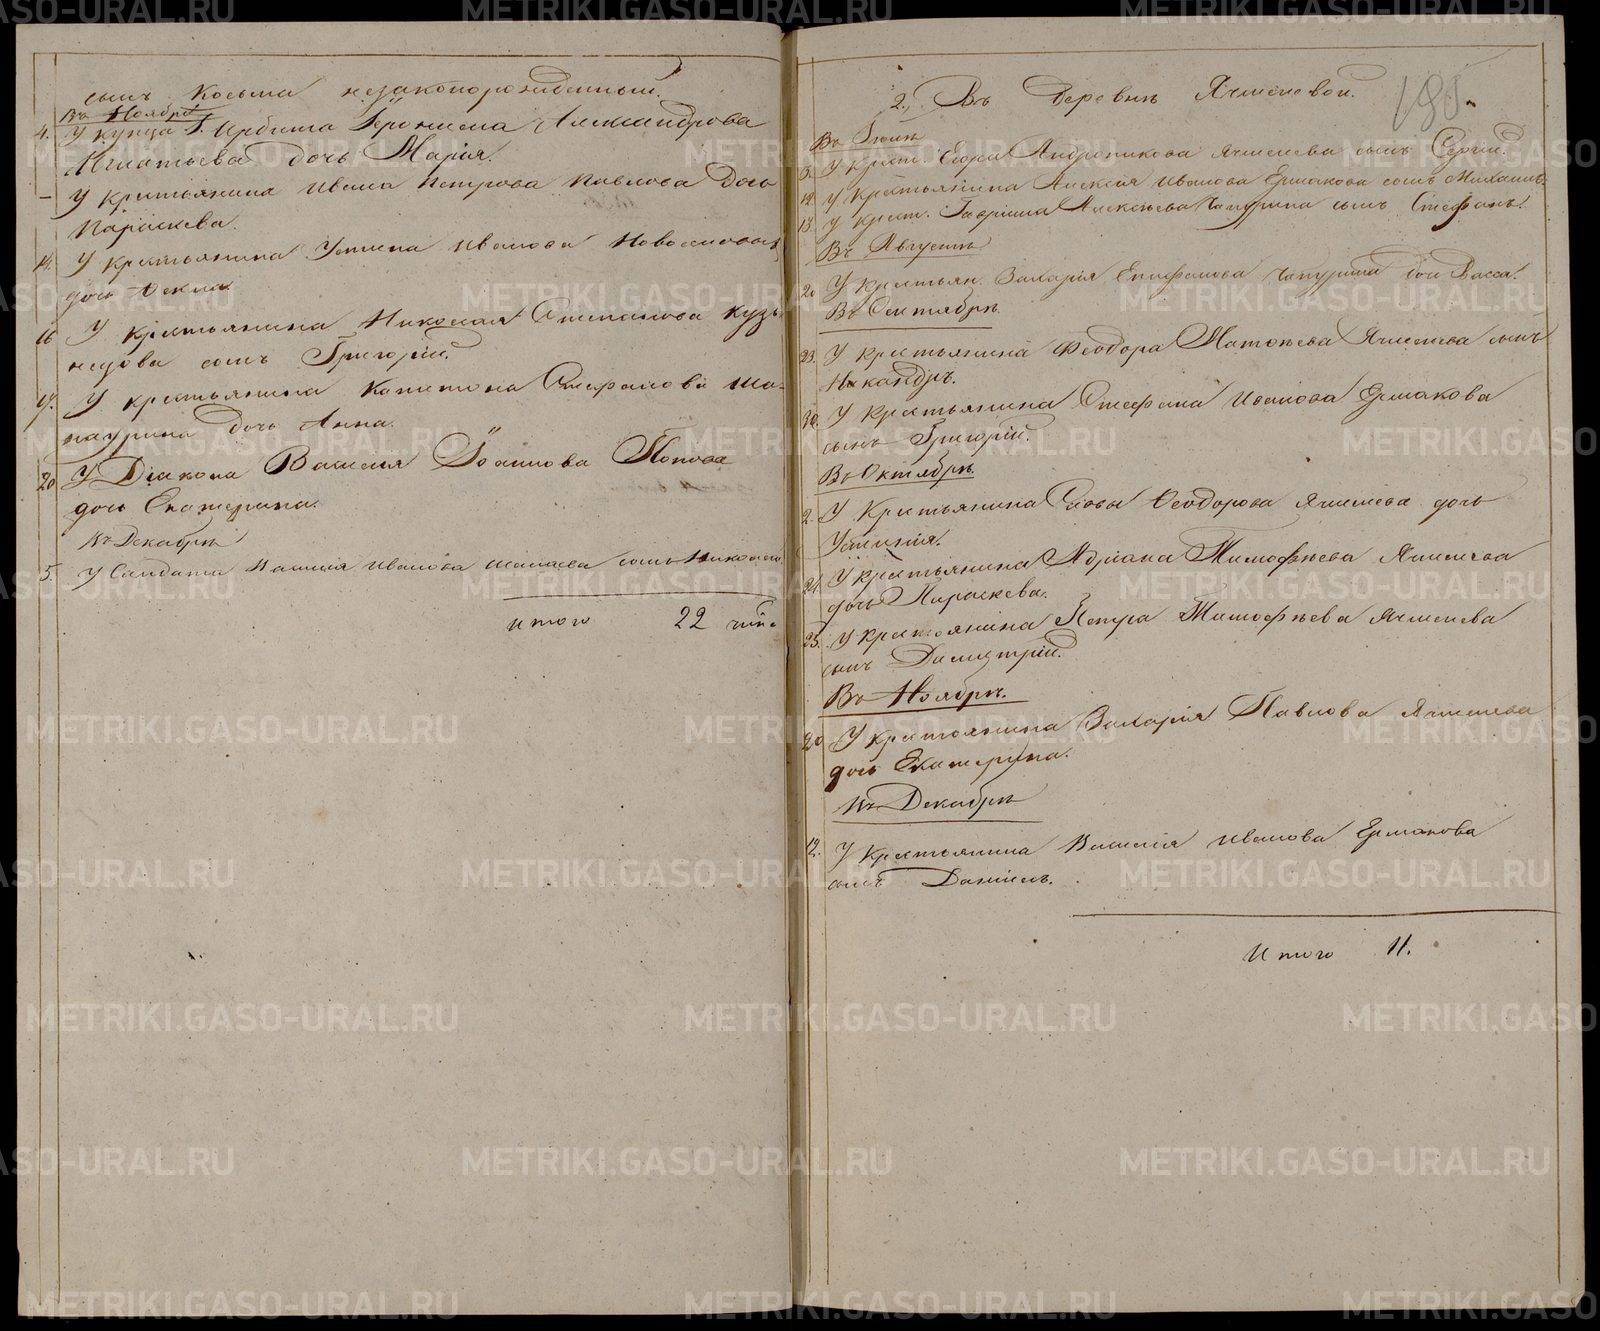 сынъ Косьма незаконорожденный.
Въ Ноябрѣ
4. У купца г. Ирбита Іеронима Александрова
Игнатьева дочь Марія.
– У крестьянина Ивана Петрова Павлова дочь
Параскева.
14. У крестьянина Устина Иванова
дочь Ѳекла
16 У крестьянина Николая Степанова Кузъ
нецова сынъ Григорій.
17. У крестьянина Капитона Стефанова Ша-
паурина дочь Анна.
20 У Діакона Василія Іоаннова Попова
дочь Екатерина.
Въ Декабрѣ
5. У Солдата Василія Иванова сынъ Николай
итого 22
2. Въ деревнѣ Ячменевой.
Въ Іюлѣ
3. У крест. Егора Андроникова Ячменева сынъ Сергій.
12. У крестьянина Алексѣя Иванова Ермакова сынъ Михаилъ.
13. У крест. Гавріила Алексѣева Чапурина сынъ Стефанъ.
Въ Августѣ
20 У крестьян. Захарія Епифанова Чапурина доч Васса.
Въ Сентябрѣ.
23. У крестьянина Феодора Матѳѣева Ячменева сынъ
Никандръ.
30. У крестьянина Стефана Иванова Ермакова
сынъ Григорій.
Въ Октябрѣ.
2. У крестьянина Саввы Ѳеодорова Ячменева дочь
Устинія.
24. У крестьянина Адріана Тимофѣева Ячменева
дочь Параскева.
25. У крестьянина Петра Тимофѣева Ячменева
сынъ Димитрій.
Въ Ноябрѣ.
20 У крестьянина Захарія Павлова Ячменева
дочь Екатерина.
Въ Декабрѣ
12. У крестьянина Василія Иванова Ермакова
сынъ Даніилъ.
Итого 11.
METRIKI.GASO-URAL.RU